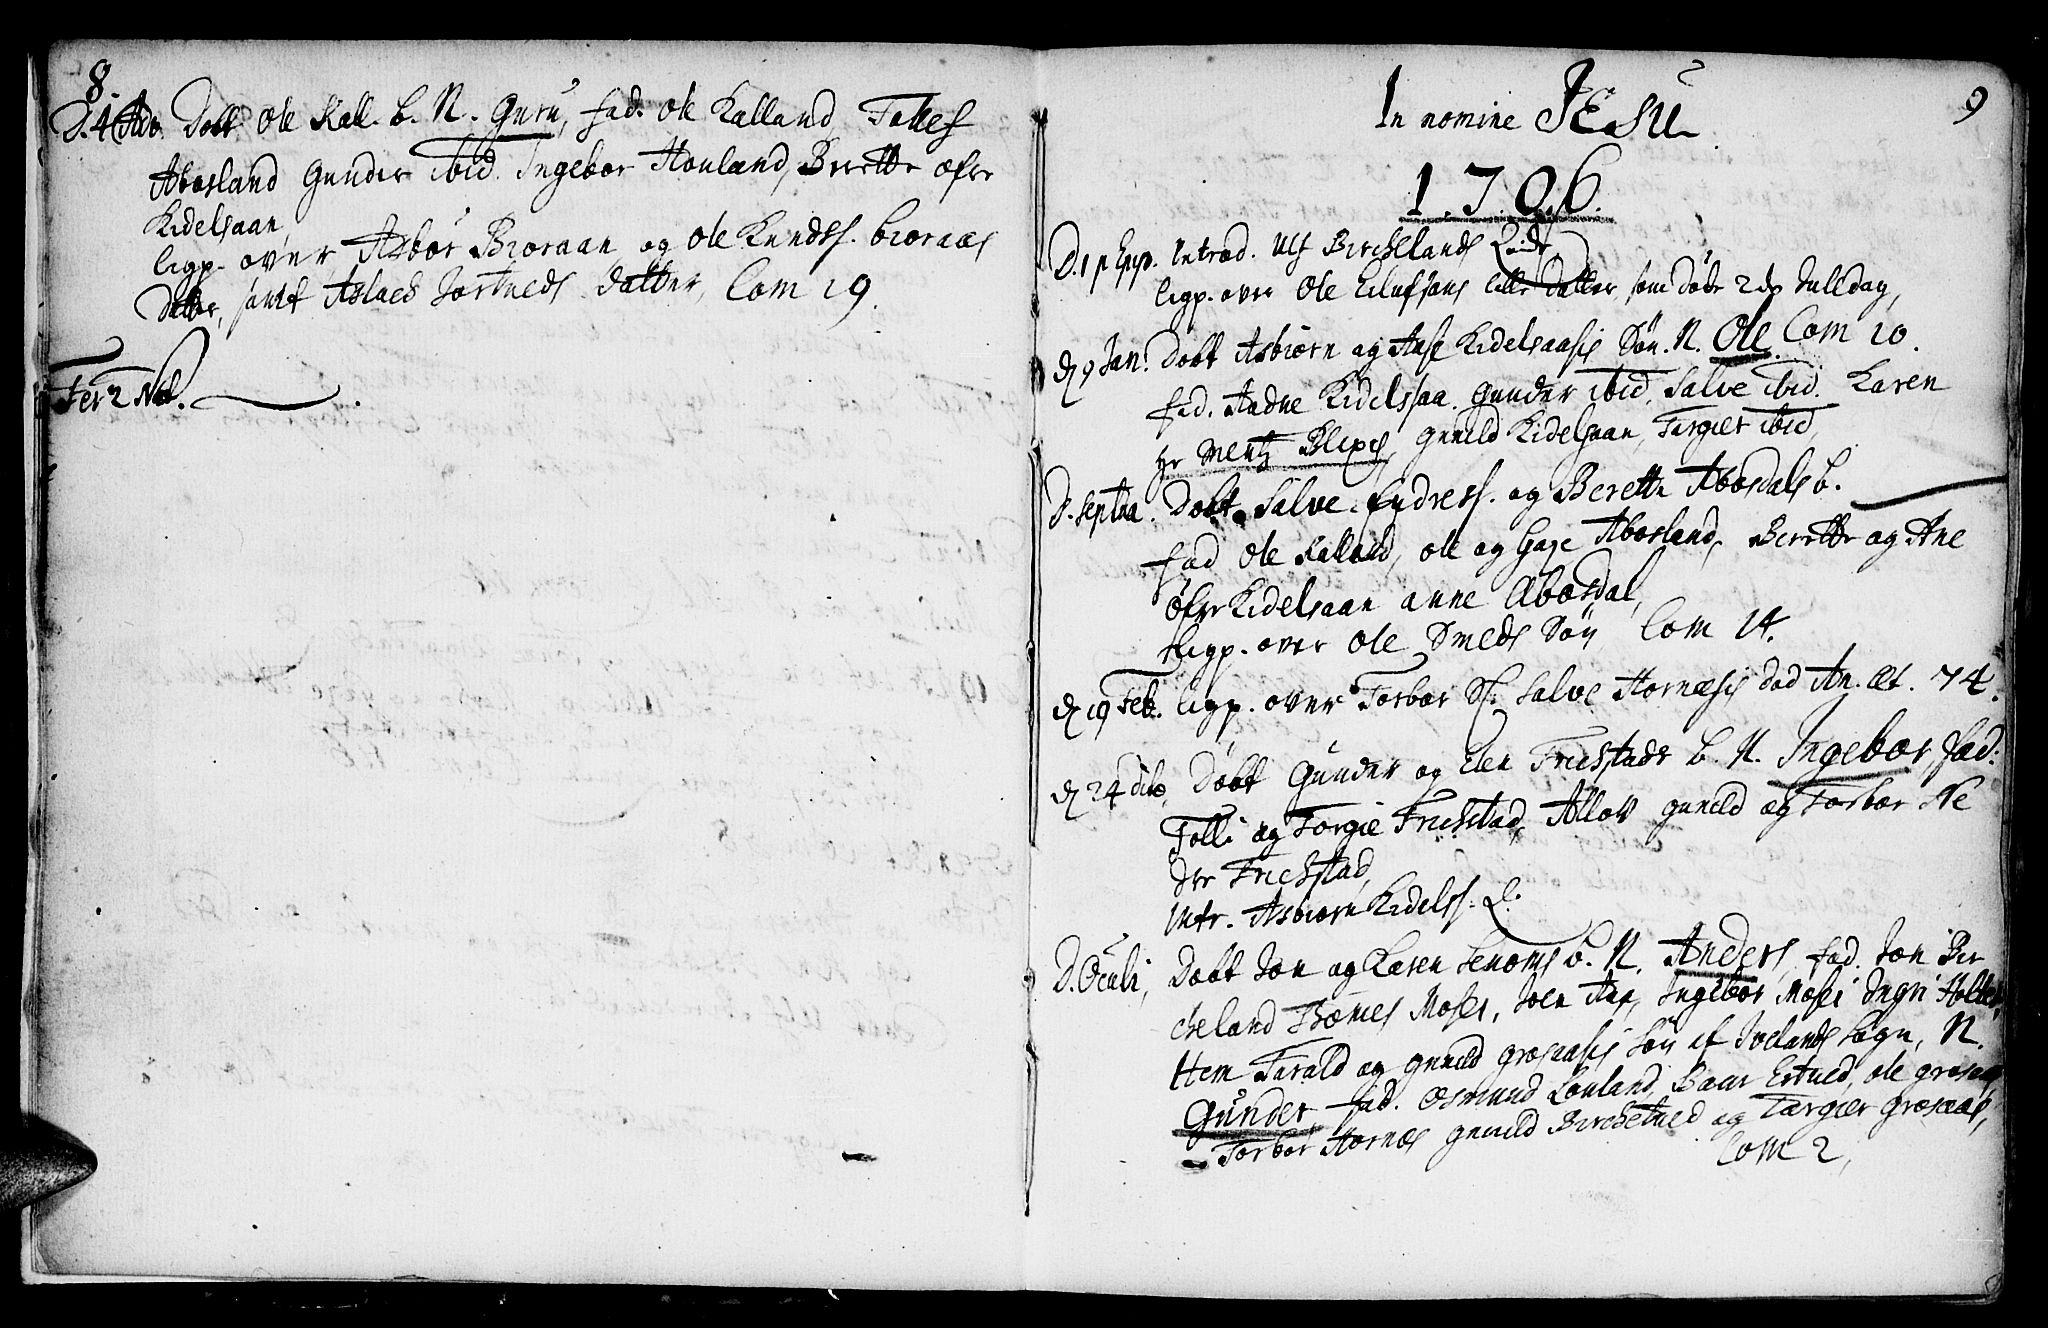 8.
D. 4 Adv. Døbt Ole Kall. b. N. Guru, fad. Ole Kalland, Tolles
Abosland Gunder ibid. Ingebor Houland, Berette øfre
Kidelsaan,
ligp. over Asbør Bioraan og Ole Knuds. bioraas
datter, samt Aslaed Tortueds datter, Com 19.
Fer 2 Nat.
9
In nomine JESU
1706.
D. 1 p Epip. Introd. Ulf Birchelands Qvinde
ligp. over Ole Eilufsøns lille datter, som døde 2den Julldag,
d 9 Jan. Døbt Asbiørn og Aase Kidelsaasis Søn. N. Ole. Com 10.
fad. Aadne Kidelssaa. Gunder ibid, Salve ibid. Karen
Hr Mentz Blixes, Gunild Kidelsaan, Targier ibid,
D. Septua. Døbt Salve Endress. og Berette Abosdals b.
fad Ole Kaland, Ole og Abosland, Berette og Ane
Øfre Kidelsaan anne Abosdal,
ligp. over Ole Smeds Søn Com 14.
d 19 Feb. ligp. over Torbor Sl. Salve Hornæsis død An. Æt. 74.
d 24 dito, Døbt Gunder og Elen Friestads b. N. Ingebor, fad.
Tolli og Torgie Friestad, Allou gunild og Torbor Ne
dre Friestad,
Intr. Asbiørn Kidelss. Q.
D. Oculi, Døbt Jon og Karen Senoms b. N. Anders, fad. Jon Bir
cheland Tomes Moseı, Joen Aas, Ingebor Mosei Ingri Holte,
Item Tarald og gunild grosaasis Søn af Ivelands Sogn, N.
Gunder, fad. Osmund Louland, Baar Ertued, Ole grosaas,
Torbor Hornes gunild Birchetued og Targier grosaas,
Com 2,